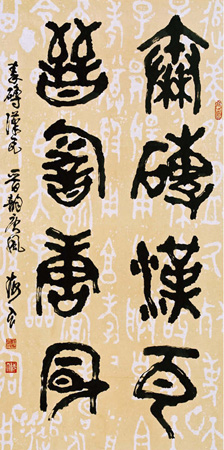 秦磚漢瓦
晉韻唐風
秦磚漢瓦 晉韻唐風